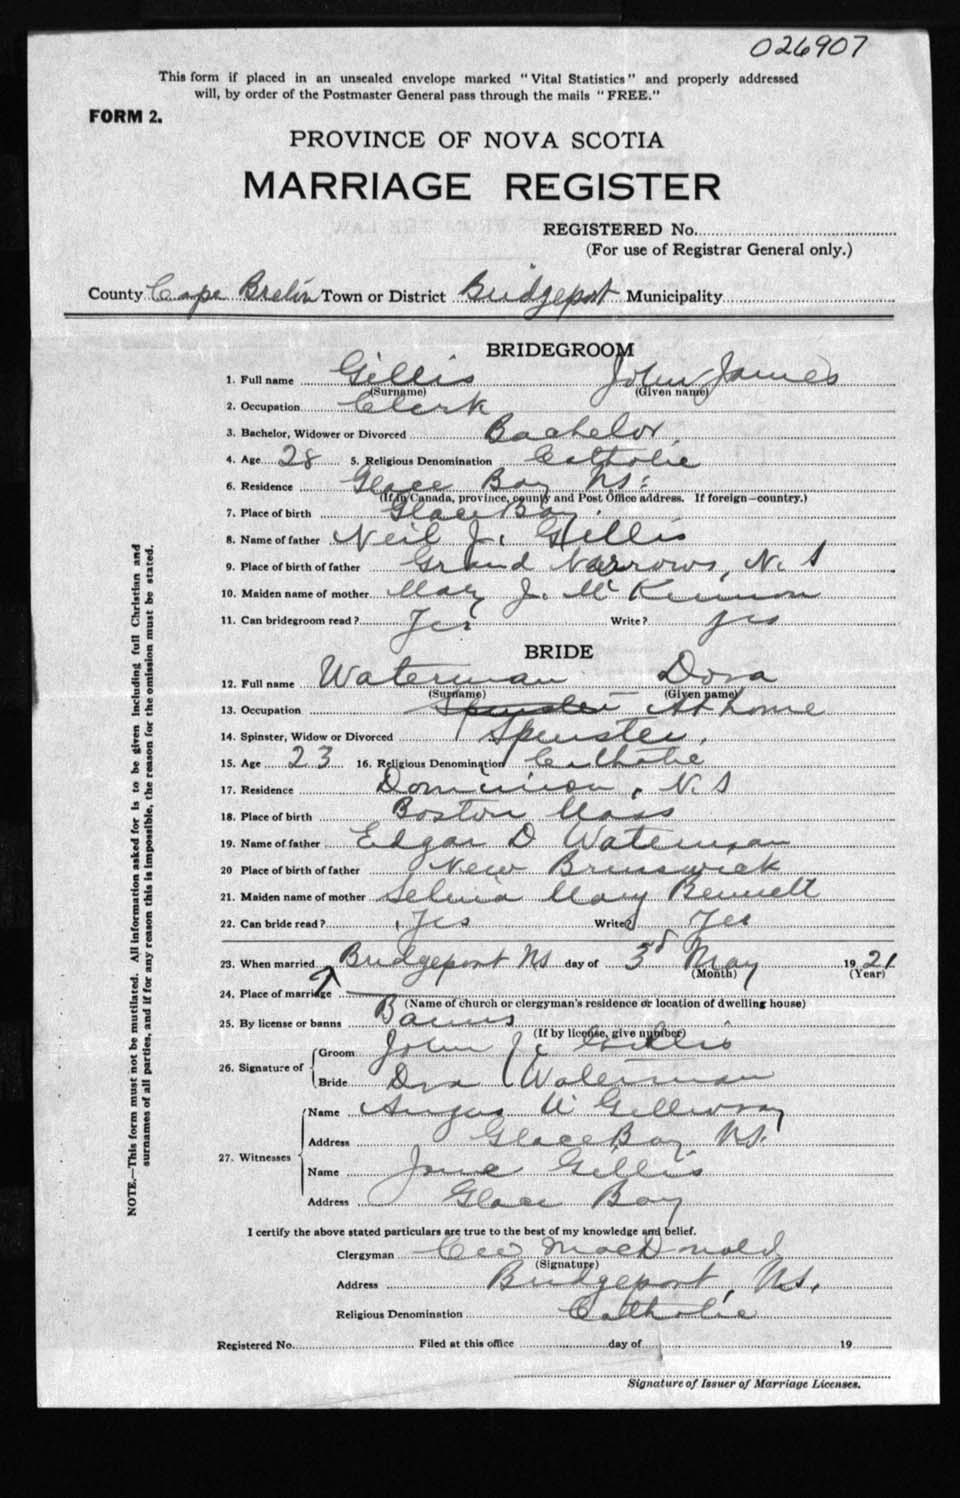 026907
This form if placed in an unsealed envelope marked "Vital Statistics" and properly addressed
will, by order of the Postmaster General pass through the mails "FREE."
FORM 2.
PROVINCE OF NOVA SCOTIA
MARRIAGE REGISTER
REGISTERED No.
(For use of Registrar General only.)
County Cape Breton Town or District Bridgeport Municipality
BRIDEGROOM
1. Full name Gillis John James
(Surname) (Given name)
2. Occupation Clerk
3. Bachelor, Widower or Divorced Bachelor.
4. Age 28 5. Religious Denomination Catholic
6. Residence Glace Bay NS.
(If in Canada, province, county and Post Office address. If foreign—country.)
7. Place of birth Glace Bay.
8. Name of father Neil J. Gillis
9. Place of birth of father Grand Narrows, N. S
10. Maiden name of mother Mary J. McKinnon
11. Can bridegroom read? Yes Write? Yes
BRIDE
12. Full name Waterman Dora
(Surname) (Given name)
13. Occupation Spinster At home
14. Spinster, Widow or Divorced Spinster.
15. Age 23 16. Religious Denomination Catholic
17. Residence Dominion, N. S
18. Place of birth Boston Mass
19. Name of father Edgar D Waterman
20 Place of birth of father New Brunswick
21. Maiden name of mother Selina Mary Bennett
22. Can bride read? Yes Write? Yes
23. When married Bridgeport NS day of 3d May 1921
(Month) (Year)
24. Place of marriage
(Name of church or clergyman's residence or location of dwelling house)
25. By license or banns Banns
(If by license, give number)
26. Signature of
Groom John J. Gillis
Bride Dora Waterman
27. Witnesses
Name Angus
Address Glace Bay NS.
Name Jane Gillis
Address Glace Bay
I certify the above stated particulars are true to the best of my knowledge and belief.
Clergyman MacDonald
(Signature)
Address Bridgeport, NS.
Religious Denomination Catholic
Registered No. Filed at this office day of 19
Signature of Issuer of Marriage Licenses.
NOTE.—This form must not be mutilated. All information asked for is to be given including full Christian and
surnames of all parties, and if for any reason this is impossible, the reason for the omission must be stated.